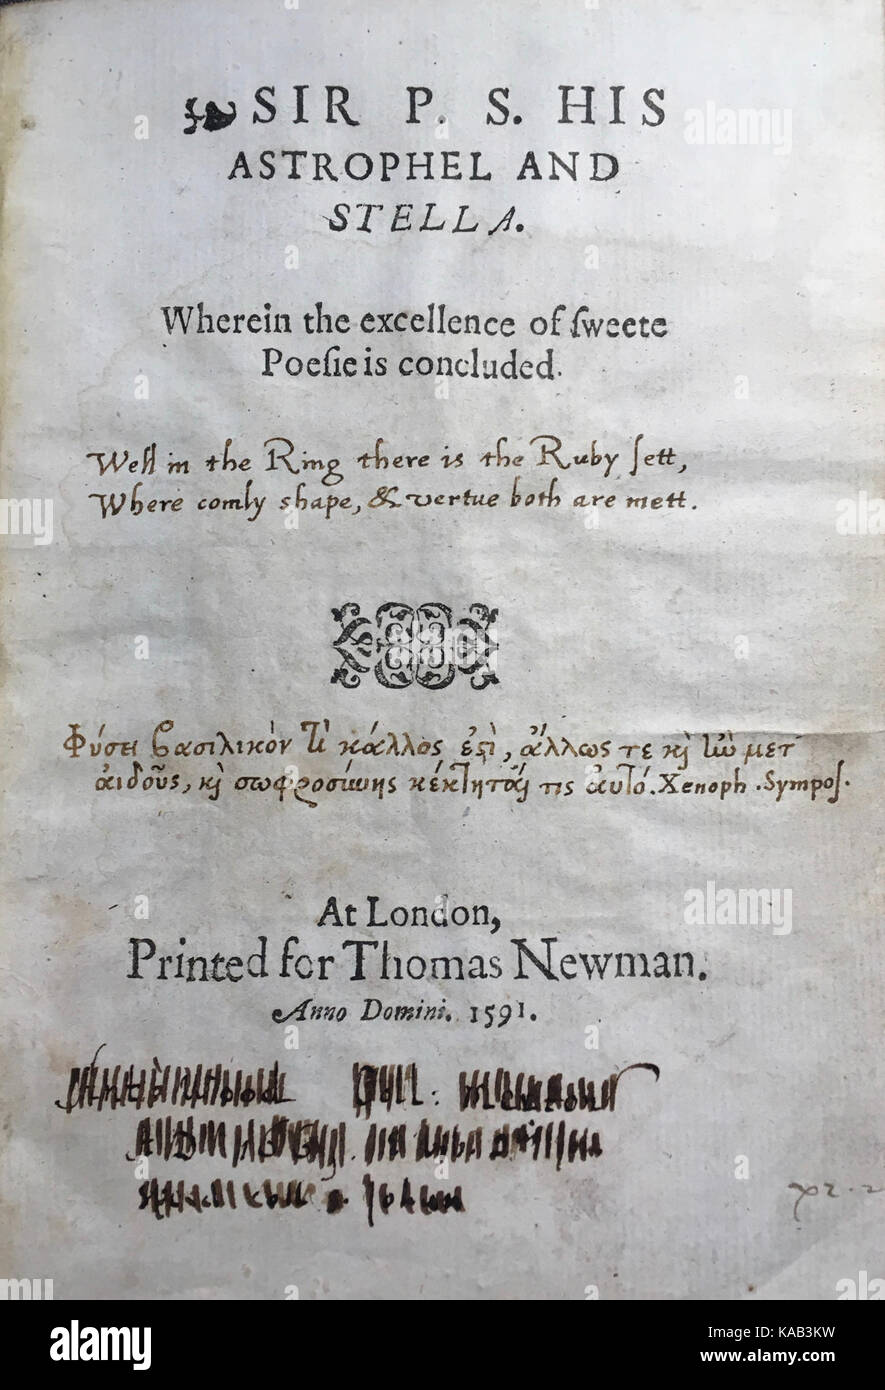 SIR P. S. HIS
ASTROPHEL AND
STELLA.
Wherein the excellence of ſweete
Poeſie is concluded.
Well in the Ring there is the Ruby ſett,
Where comly shape, & vertue both are mett.
Φύσει βασιλικὸν τὶ κάλλος ἐϛὶ, ἄλλως τε κỳ ἰὼ μετ
αἰδοῦς, κỳ σωφροσύνης κέκτηταί τις αὐτό. Xenoph. Sympoſ.
At London,
Printed for Thomas Newman.
Anno Domini. 1591.
alamy
Image ID: KAB3KW
www.alamy.com